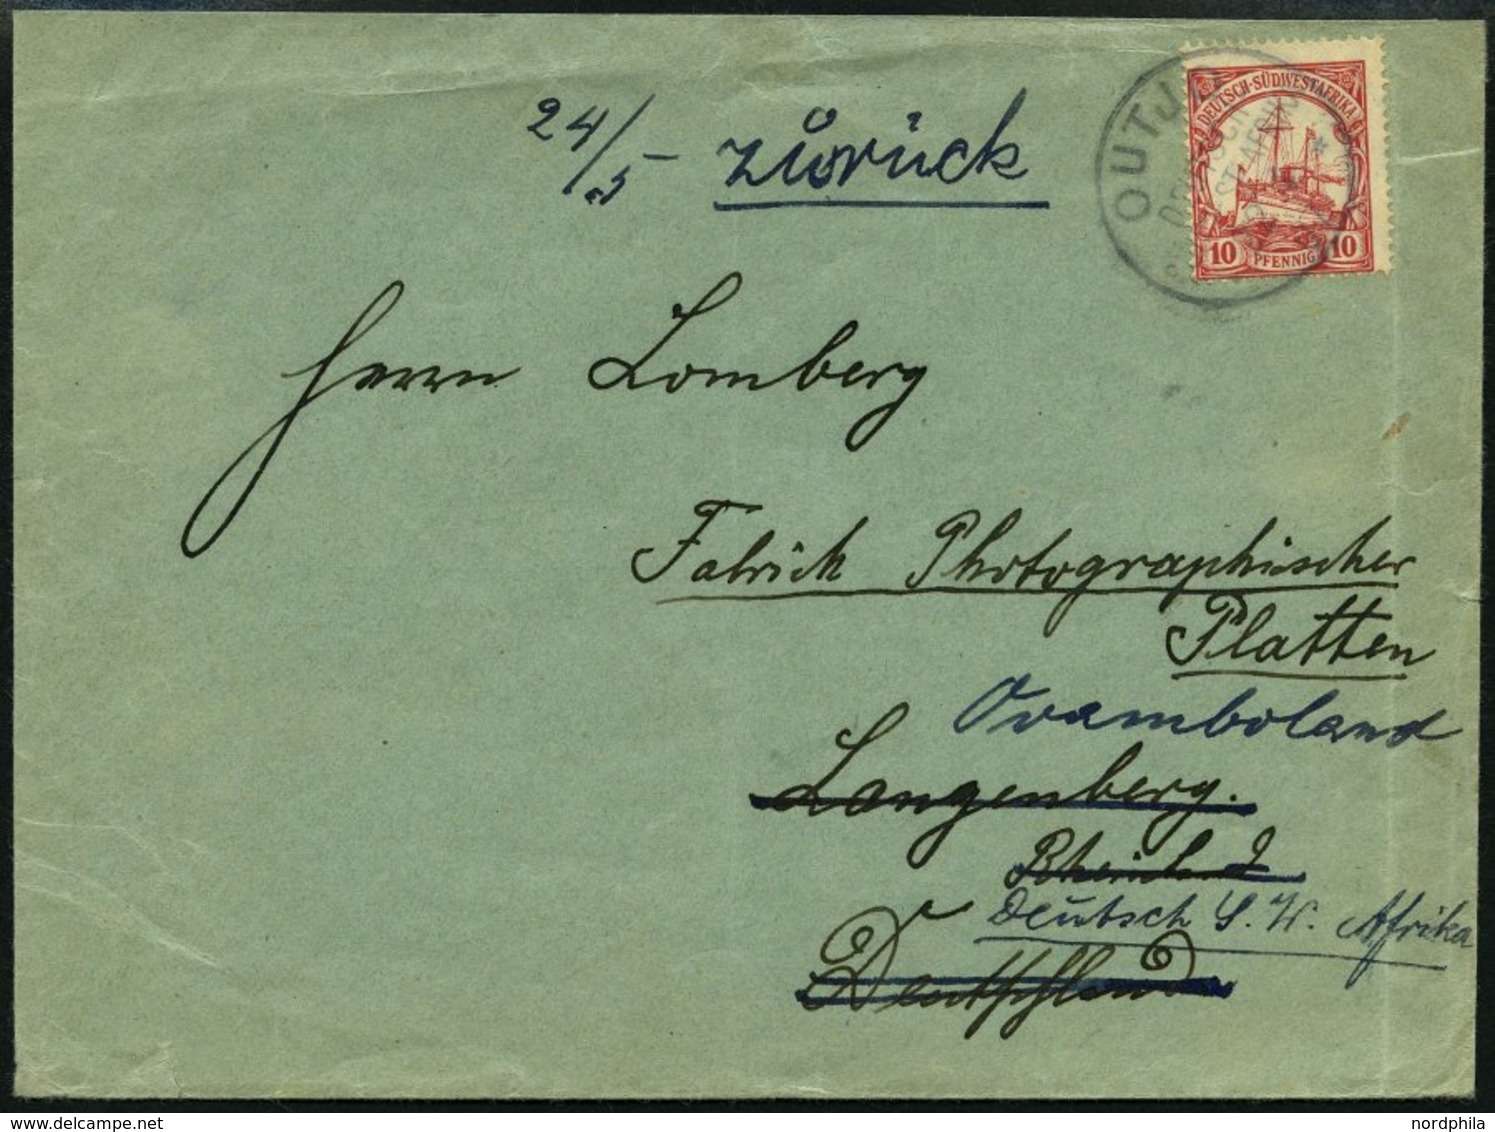 24/5 zurück
OUTJ
DEUTSCH-SÜDWESTAFRIKA
10 PFENNIG 10
Herrn Lomberg
Fabrick Photographischer
Platten
Ovamboland
Langenberg.
Rheinl.
Deutsch S. W. Afrika
Deutschland
nordphila